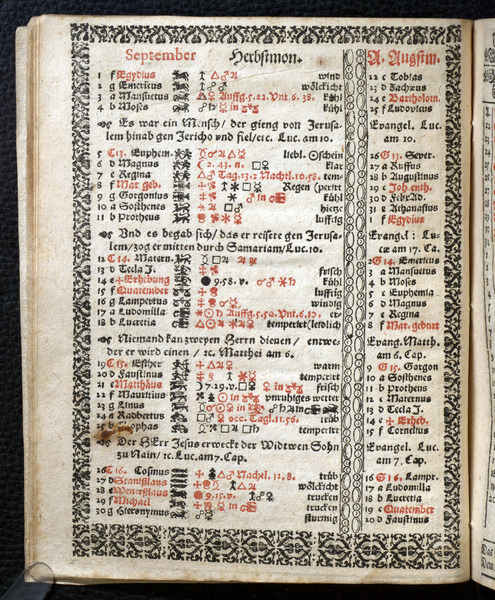 September Herbstmon. A. Augstm.
1 f Egydius wind 22 c Tobias
2 g Emericus wölckicht 23 d Zachæus
3 a Mansuetus Auffg. 5. 22. Unt. 6. 38. kühl 24 e Bartholom.
4 b Moses kühl 25 f Ludovicus
Es war ein Mensch / der gieng von Jerusa- Evangel. Luc.
lem hinab gen Jericho und fiel / ꝛc. Luc. am 10. am 10.
5 C 13. Euphem. liebl. schein 26 G 13. Sever.
6 d Magnus 2. 43. n. klar 27 a Ruffus
7 e Regina Tag. 13. 2 Nachtl. 10. 58. tem- 28 b Augustinus
8 f Mar. geb. Regen perirt 29 c Joh. enth.
9 g Gorgonius in kühl 30 d Febr. Ad.
10 a Sosthenes hietze 31 e Athanasius
11 b Protheus lufftig 1 f Egydius
Und es begab sich / das er reisete gen Jerusa- Evangel: Lu-
lem / zog er mitten durch Samariam / Luc. 10. cæ am 17. Ca.
12 C 14. Matern. 2 G 14. Emericus
13 d Tecla J. frisch 3 a Mansuetus
14 e Erhebung 9. 58. v. kühl 4 b Moses
15 f Quatember lufftig 5 c Euphemia
16 g Lampertus windig 6 d Magnus
17 a Ludomilla Auffg. 5. 50. Unt. 6. 10. er- 7 e Regina
18 b Lucretia temperiret lieblich 8 f Mar. geburt
Niemand kan zweyen Herrn dienen / entwe- Evang. Matth.
der er wird einen / ꝛc. Matthei am 6. am 6. Cap.
19 C 15. Esther warm 9 G 15. Gorgon
20 d Faustinus temperiret 10 a Sosthenes
21 e Matthäus 7. 29. v. in frisch 11 b Protheus
22 f Mauritius in unruhiges wetter 12 c Maternus
23 g Linus in in 13 d Tecla J.
24 a Radbertus occ. Tagl. 11. 56. trüb 14 e Erheb.
25 b Cleophas temperirt 15 f Cornelius
Der HErr Jesus erwecket der Widtwen Sohn Evangel. Luc.
zu Nain / ꝛc. Luc. am 7. Cap. am 7. Cap.
26 C 16. Cosmus Nachtl. 12. 8. trüb 16 G 16. Lampr.
27 d Stanislaus wölckicht 17 a Ludomilla
28 e Wenceslaus 9. 15. v. trucken 18 b Lucretia
29 f Michael in trucken 19 c Quatember
30 g Hieronymus sturmig 20 d Faustinus